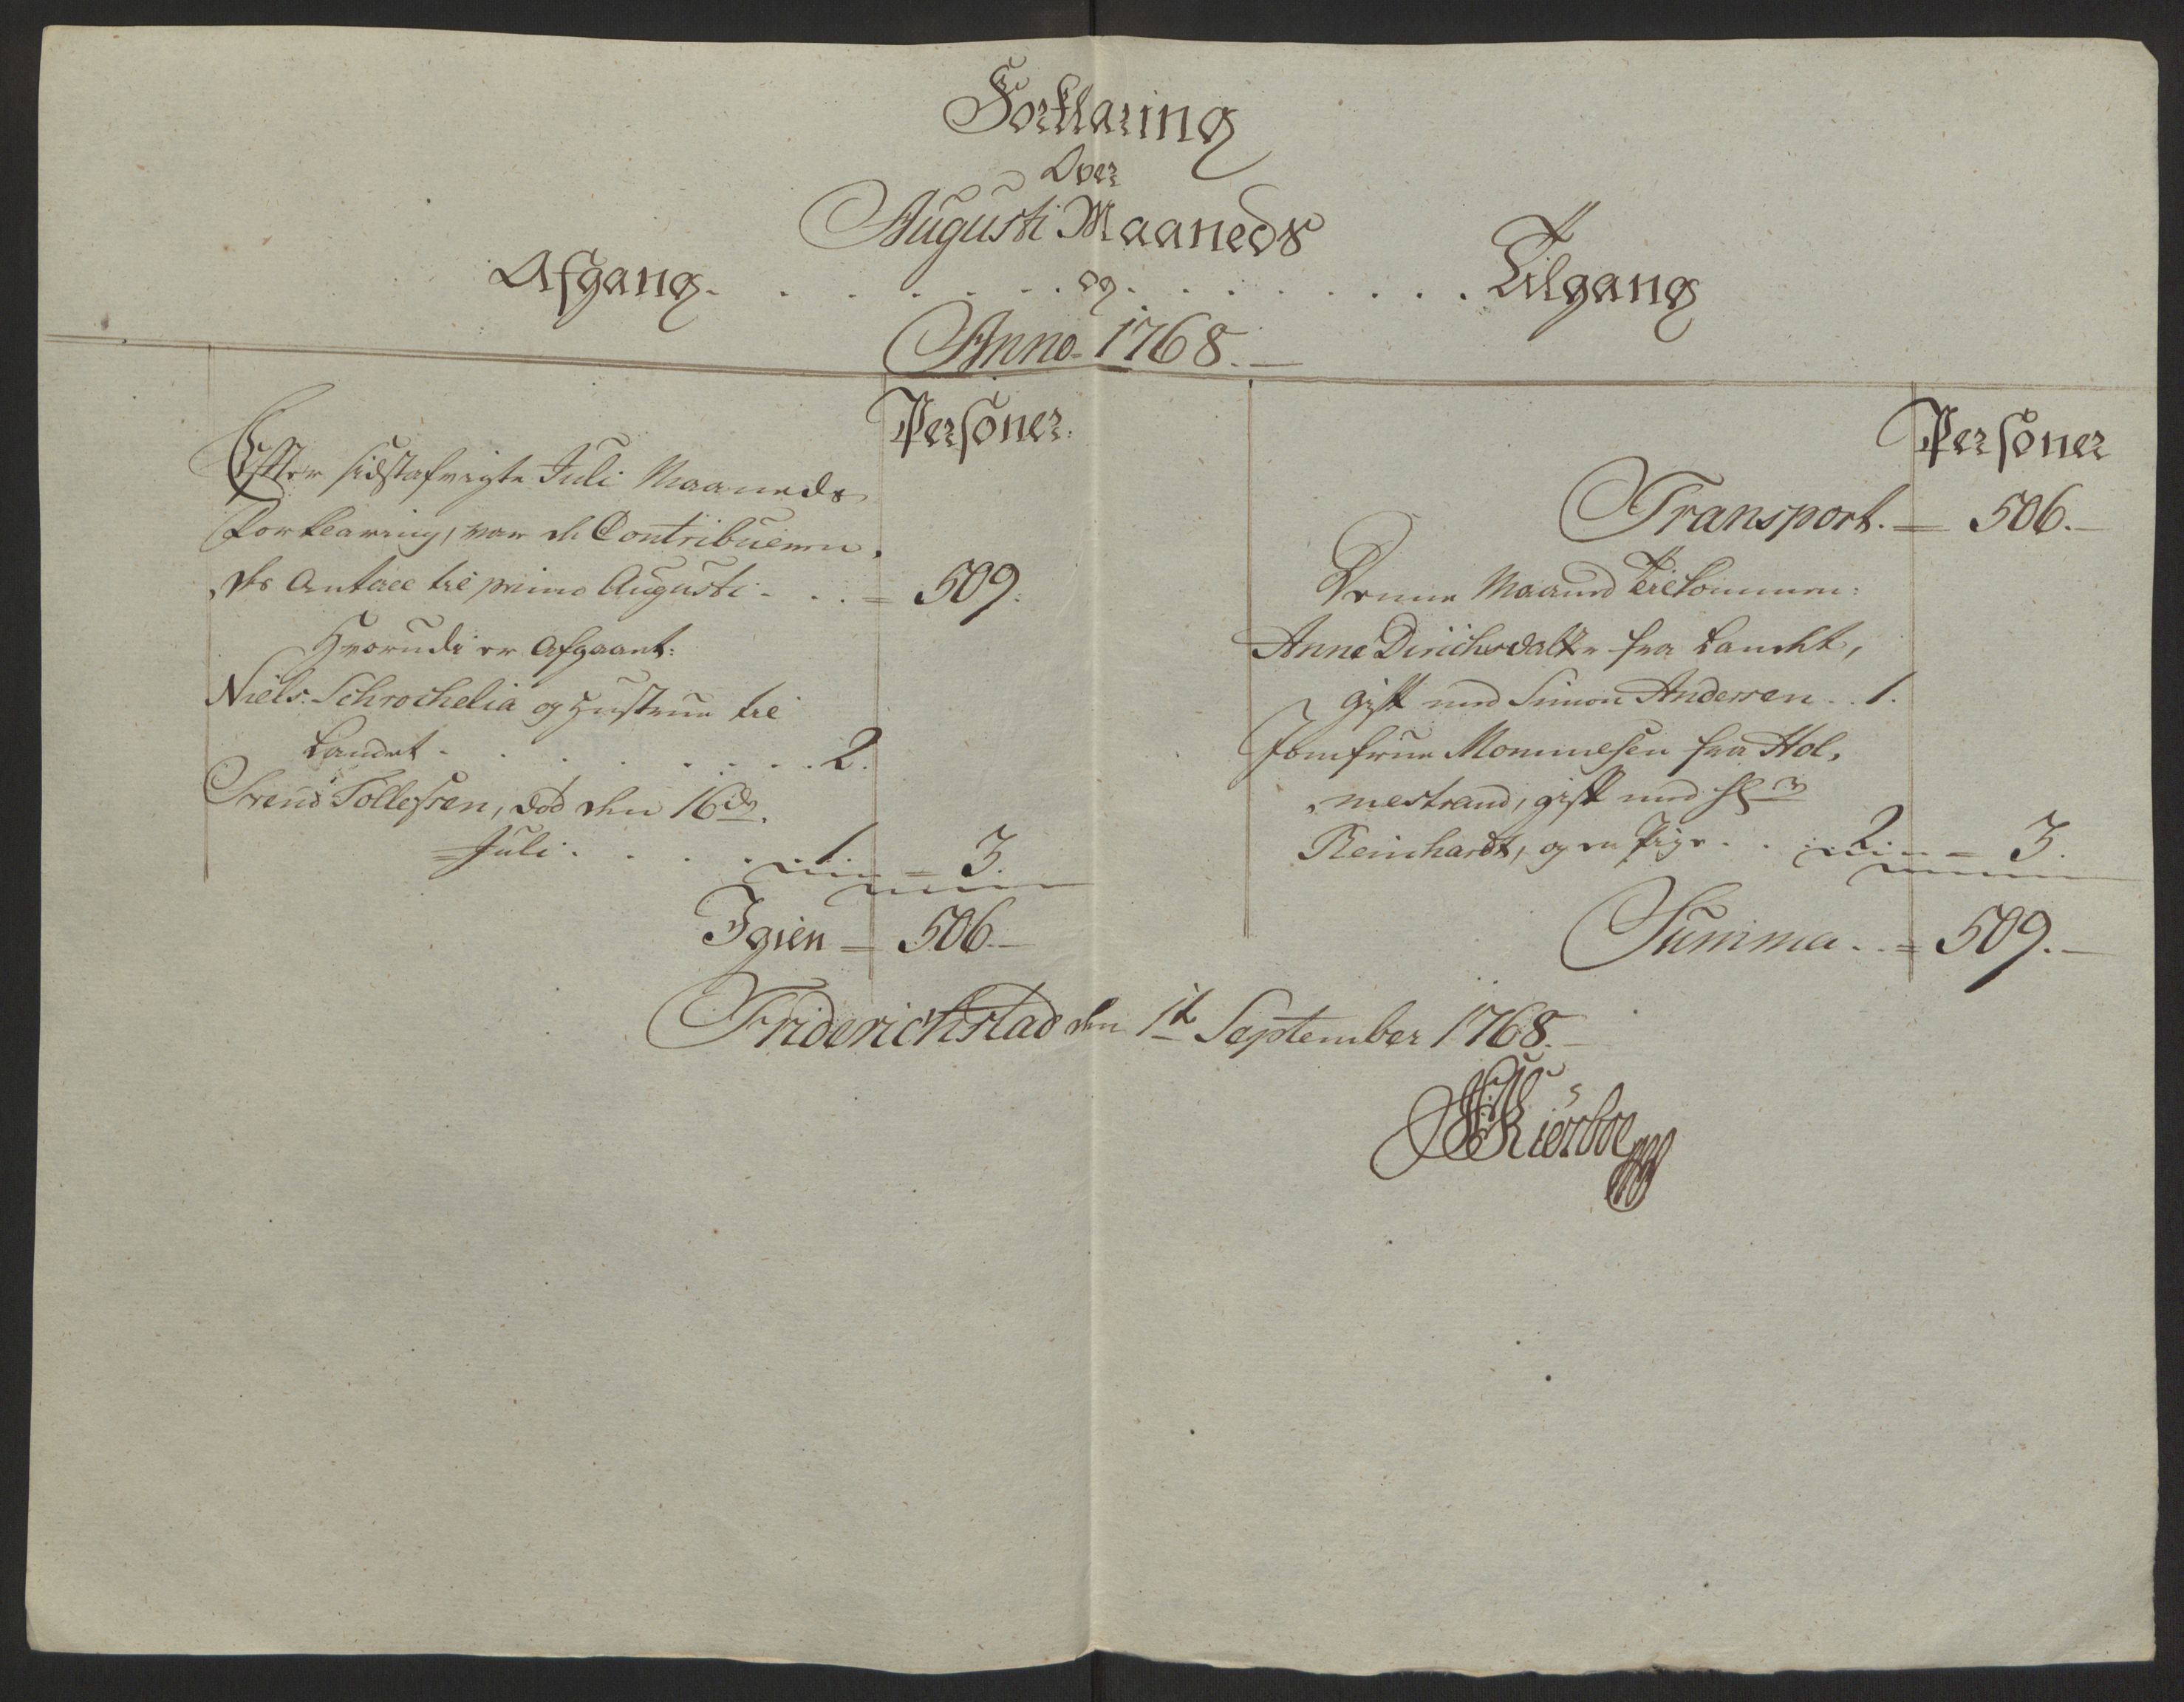 Forklaring
Over
Augusti Maaneds
Afgang. . . . . . . og. . . . . . . Tilgang
Anno 1768.
Personer.
Efter sidstafvigte Juli Maaneds
Forklaring, var de Contribueren,
des Antall til primo Augusti . . . = 509.
Hvorudi er Afgaaet:
Niels Schrochelia og Hustrue til
Landet . . . . . . . . 2.
Svend Tollefsen, død den 16de
Juli . . . . . 1. = 3.
Igien = 506.
Personer
Transport. = 506.
Denne Maaned Tilkommen:
Anne Dirichsdatter fra Landet,
gift med Simon Andersen . . 1.
Jomfrue Mommesen fra Hol,
mestrand, gift med Hr
Reinhardt, og en Pige . . . 2 = 3.
Summa . . = 509.
Friderichstad den 1te September 1768.
Kiørboe